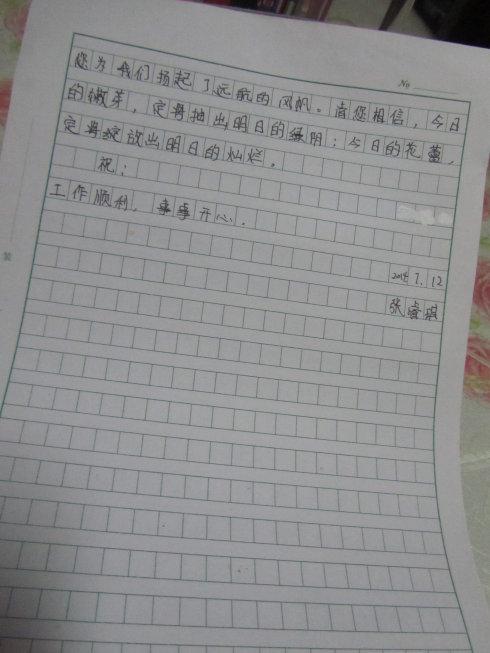 No
您为我们扬起了远航的风帆。请您相信，今日
的嫩芽，定将抽出明日的绿阴；今日的花蕾，
定将绽放出明日的灿烂。
祝：
工作顺利，事事开心。
2014.7.12
张睿琪
装